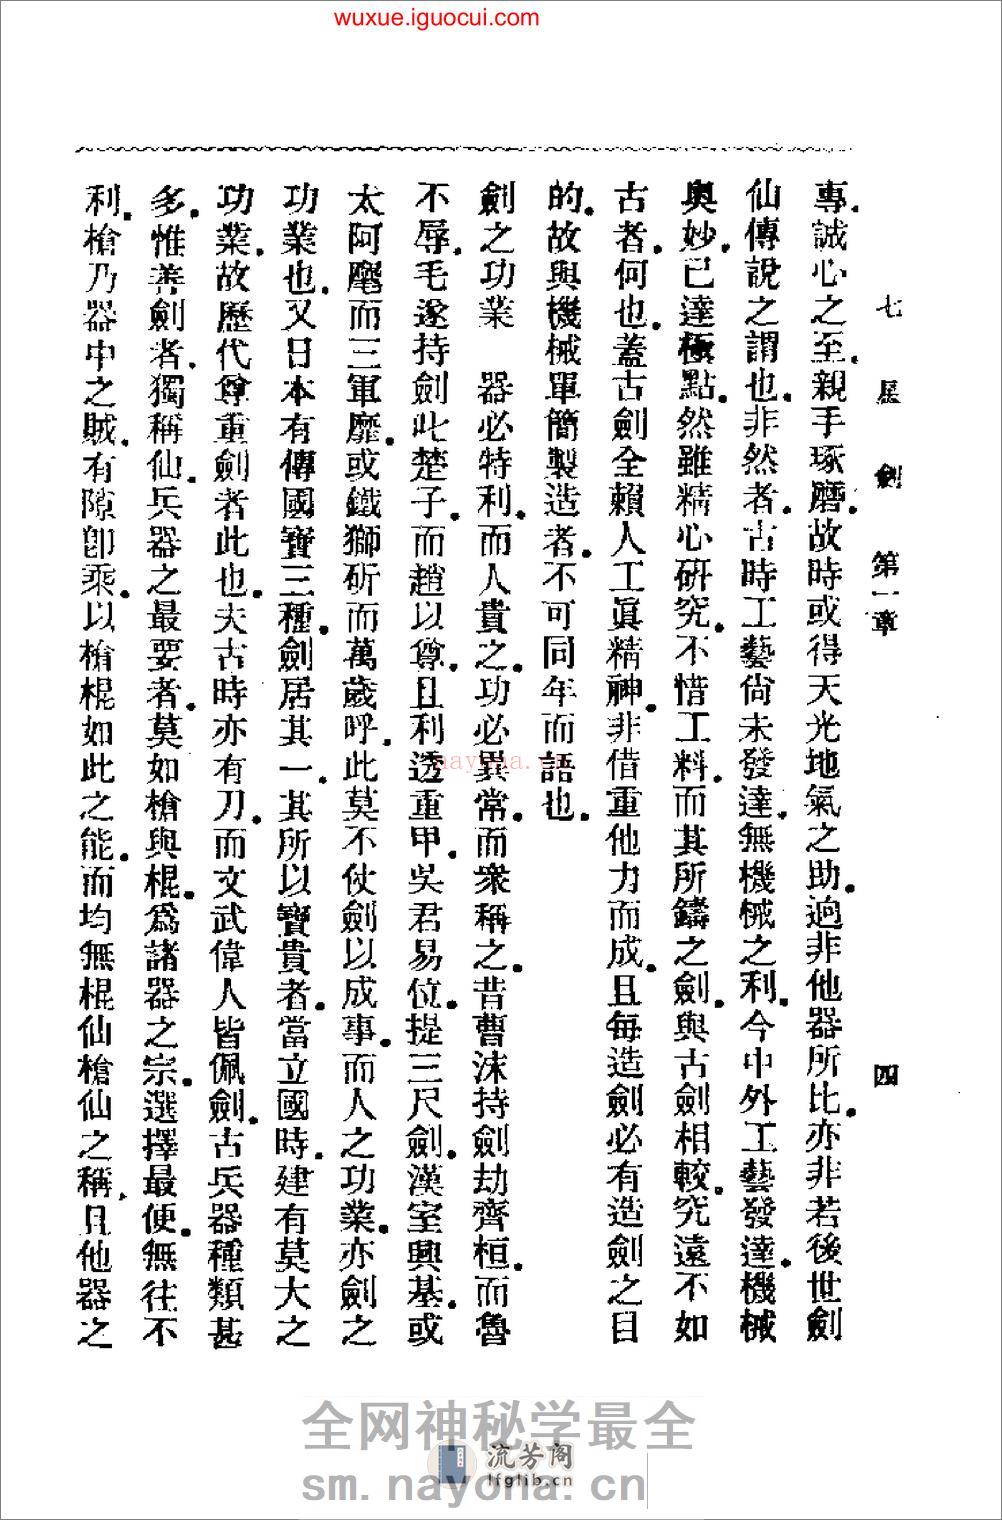 wuxue.iguocui.com
七星劍 第一章 四
專。誠心之至。親手琢磨。故時或得天光地氣之助。迥非他器所比。亦非若後世劍
仙傳說之謂也。非然者。古時工藝尙未發達。無機械之利。今中外工藝發達。機械
奧妙。已達極點。然雖精心研究。不惜工料。而其所鑄之劍。與古劍相較。究遠不如
古者。何也。蓋古劍全賴人工眞精神。非借重他力而成。且每造劍必有造劍之目
的。故與機械單簡製造者。不可同年而語也。
劍之功業 器必特利。而人貴之。功必異常。而衆稱之。昔曹沫持劍劫齊桓。而魯
不辱。毛遂持劍叱楚子。而趙以尊。且利透重甲。吳君易位。提三尺劍。漢室興基。或
太阿麾而三軍靡。或鐵獅斫而萬歲呼。此莫不仗劍以成事。而人之功業。亦劍之
功業也。又日本有傳國寶三種。劍居其一。其所以寶貴者。當立國時。建有莫大之
功業。故歷代尊重劍者此也。夫古時亦有刀。而文武偉人皆佩劍。古兵器種類甚
多。惟善劍者。獨稱仙。兵器之最要者。莫如槍與棍。爲諸器之宗。選擇最便。無往不
利。槍乃器中之賊。有隙卽乘。以槍棍如此之能。而均無棍仙槍仙之稱、且他器之
nayona.cn
全网神秘学最全
sm.nayona.cn
流芳阁
lfglib.cn